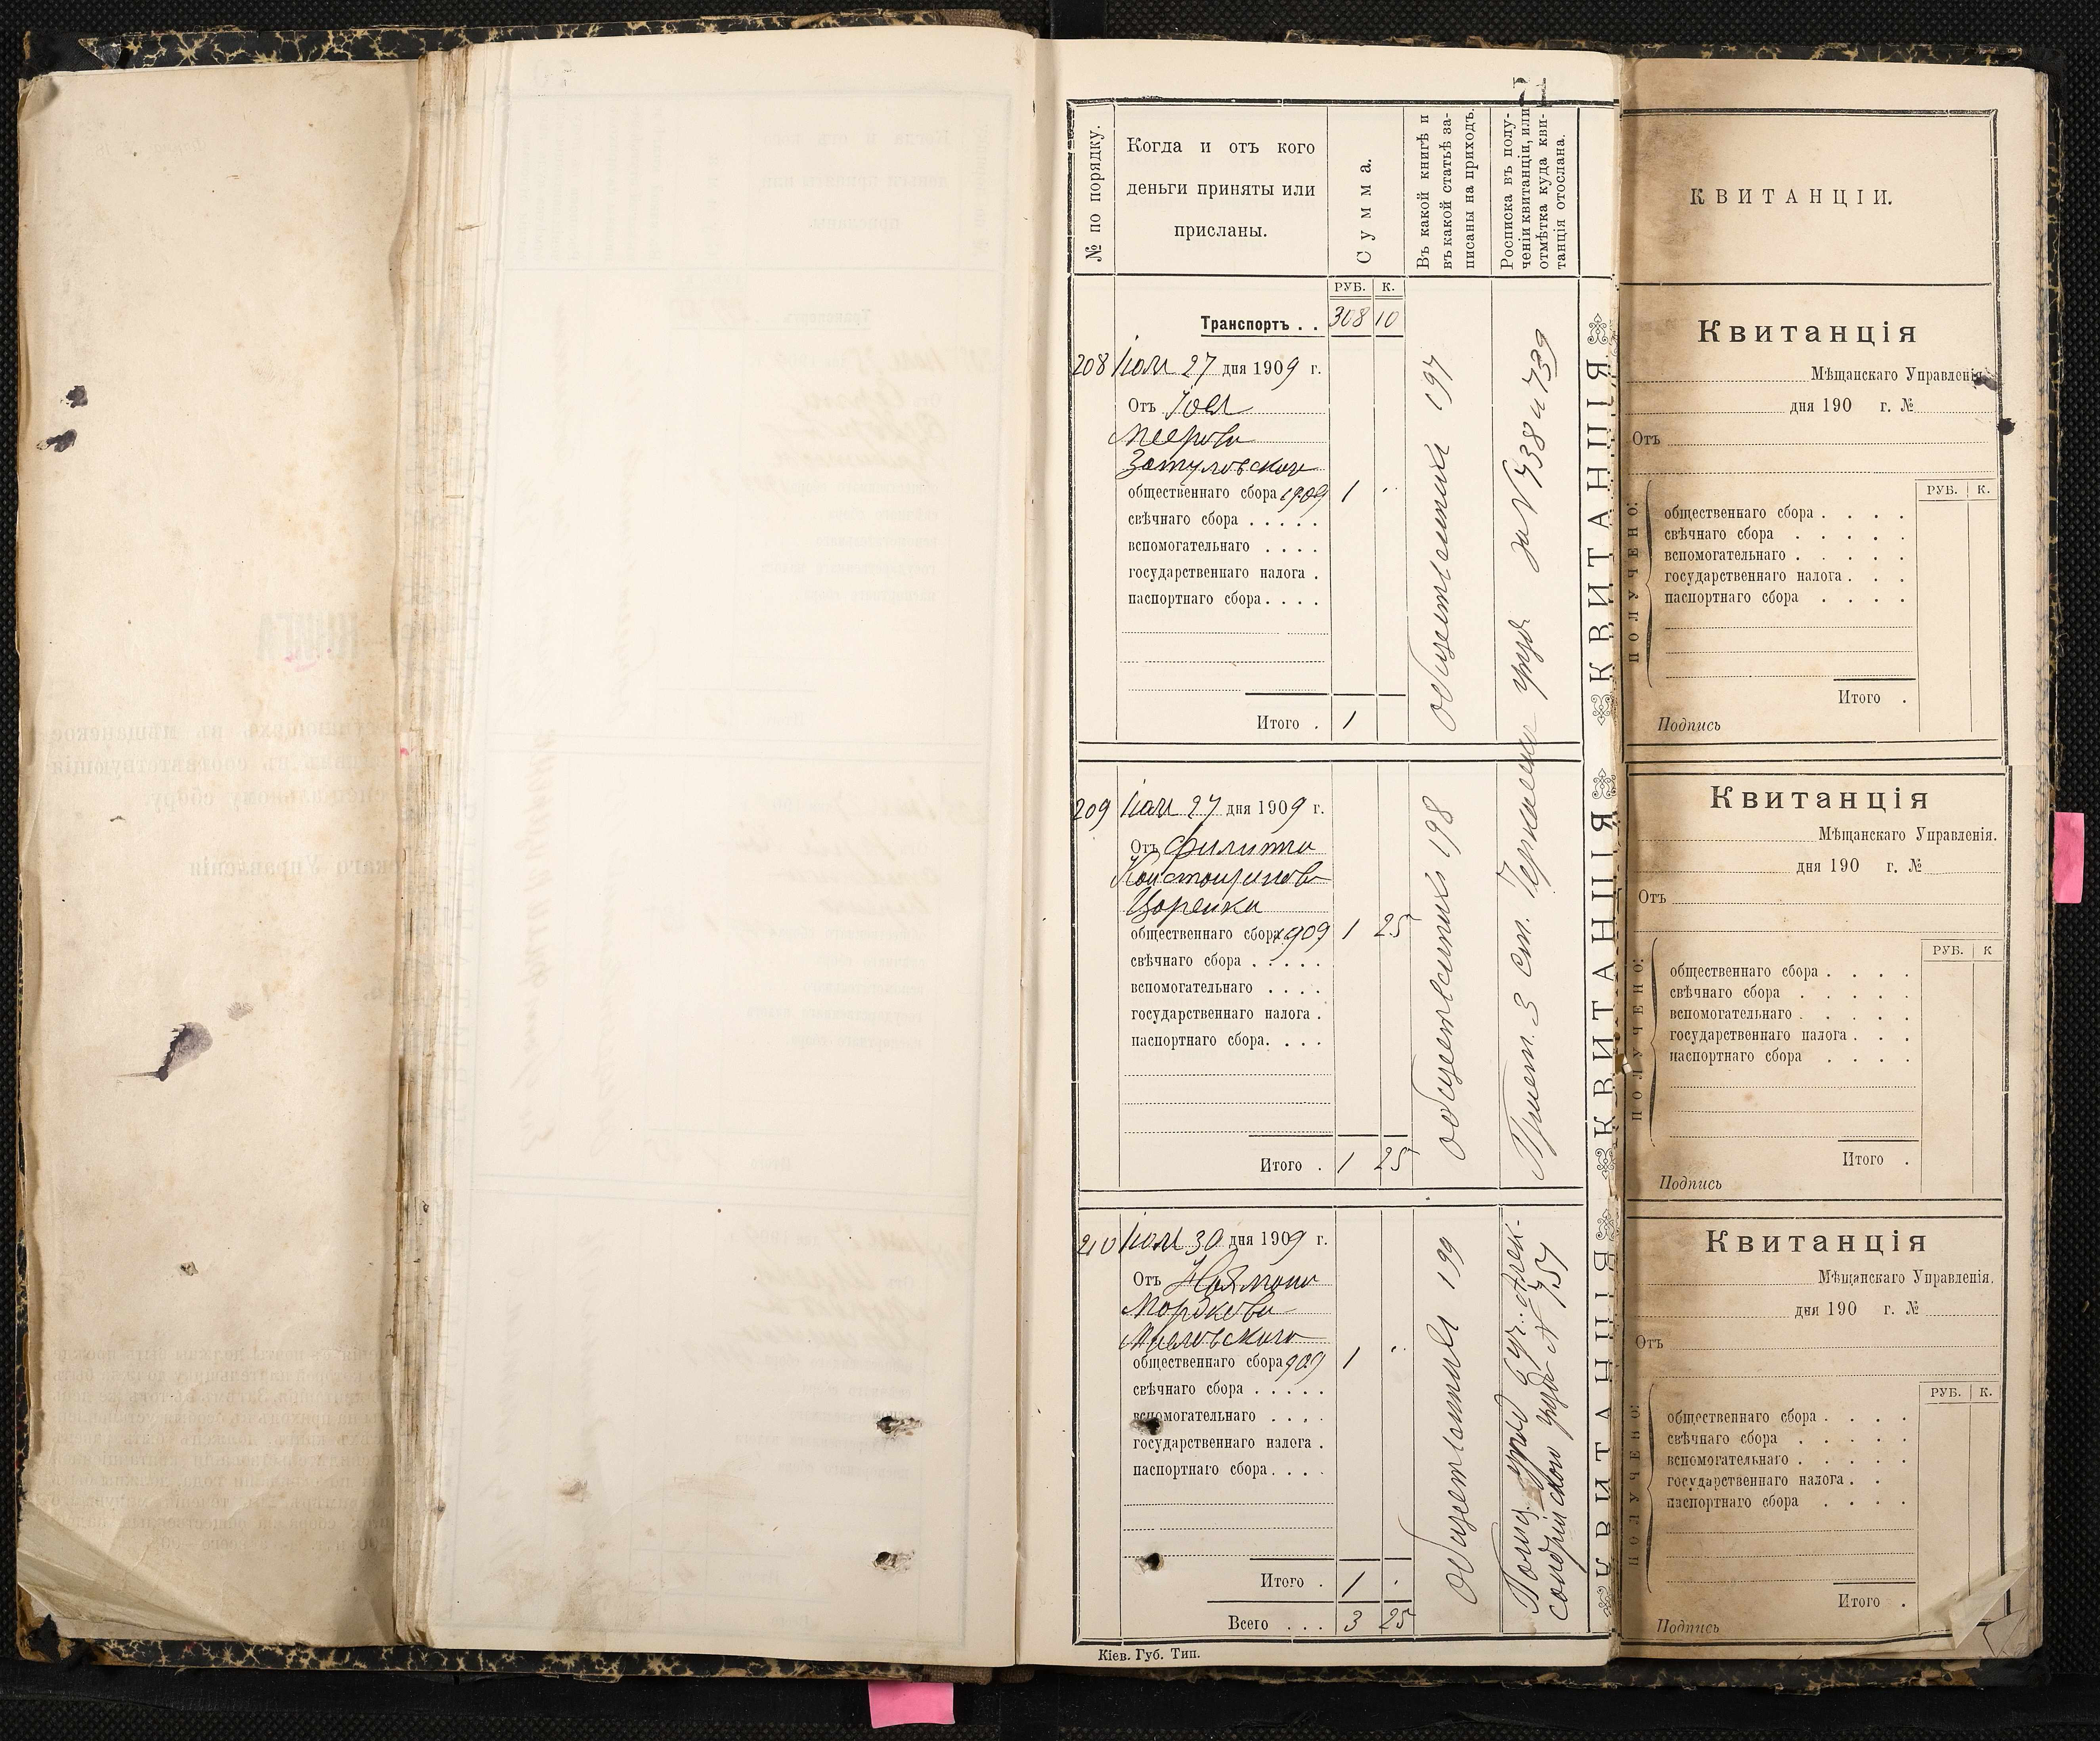 71
№ по порядку.
Когда и отъ кого
деньги приняты или
присланы.
Сумма.
Въ какой книгѣ и
въ какой статьѣ за-
писаны на приходъ.
Росписка въ полу-
ченіи квитанціи, или
отмѣтка куда кви-
танція отослана.
РУБ. К.
Транспортъ . . 308 10
208 Іюля 27 дня 1909 г.
Отъ Іося
Меерова
Затуловскаго
общественнаго сбора 1909 1 "
свѣчнаго сбора . . . . .
вспомогательнаго . . . .
государственнаго налога .
паспортнаго сбора . . . .
Итого . 1
197
за № 738 и 739
209 Іюля 27 дня 1909 г.
Отъ Филиппа
Константинова
Царенка
общественнаго сбора 1909 1 25
свѣчнаго сбора . . . . .
вспомогательнаго . . . .
государственнаго налога .
паспортнаго сбора . . . .
Итого . 1 25
198
Прист. 3 ст. Черкасск уѣзда
210 Іюля 30 дня 1909 г.
Отъ
Мордкова
общественнаго сбора 909 1 "
свѣчнаго сбора . . . . .
вспомогательнаго . . . .
государственнаго налога .
паспортнаго сбора . . . .
Итого . 1 .
Всего . . . 3 25
199
Полиц. уряд. 6 уч. Алек-
сандрійскаго уѣзда № 757
Кіев. Губ. Тип.
КВИТАНЦІЯ
КВИТАНЦІЯ
КВИТАНЦІЯ
КВИТАНЦІИ.
Квитанція
Мѣщанскаго Управленія
дня 190 г. №
Отъ
ПОЛУЧЕНО:
РУБ. К.
общественнаго сбора . . . .
свѣчнаго сбора . . . . .
вспомогательнаго . . . . .
государственнаго налога . . .
паспортнаго сбора . . . .
Итого .
Подпись
Квитанція
Мѣщанскаго Управленія.
дня 190 г. №
Отъ
ПОЛУЧЕНО:
РУБ. К
общественнаго сбора . . . .
свѣчнаго сбора . . . . .
вспомогательнаго . . . . .
государственнаго налога . . .
паспортнаго сбора . . . .
Итого .
Подпись
Квитанція
Мѣщанскаго Управленія.
дня 190 г. №
Отъ
ПОЛУЧЕНО:
РУБ. К.
общественнаго сбора . . . .
свѣчнаго сбора . . . . .
вспомогательнаго . . . . .
государственнаго налога . .
паспортнаго сбора . . . .
Итого .
Подпись